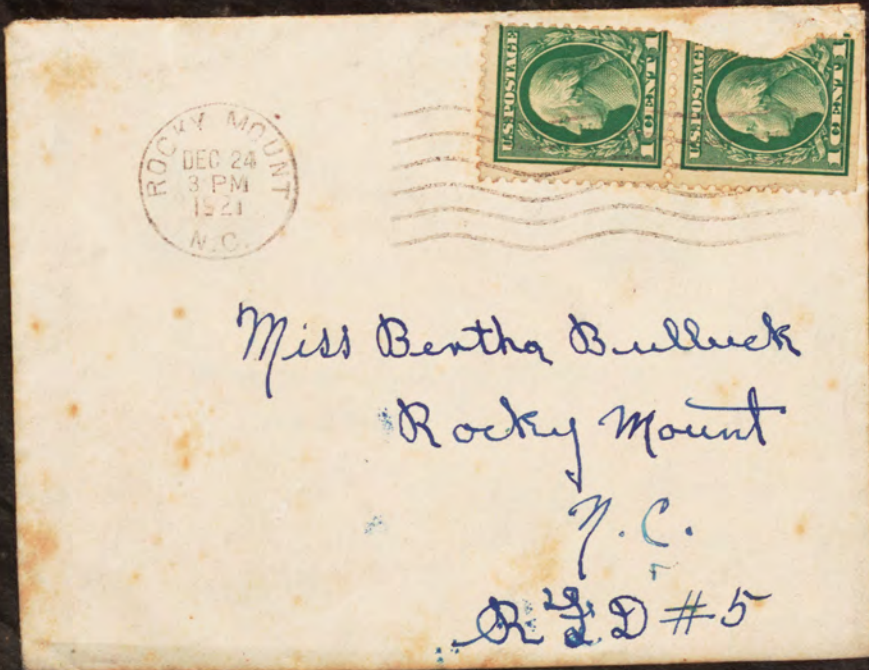 ROCKY MOUNT
DEC 24
3 PM
1921
N.C.
U.S. POSTAGE
1 CENT 1
U.S. POSTAGE
1 CENT 1
Miss Bertha Bulluck
Rocky Mount
N.C.
RFD #5